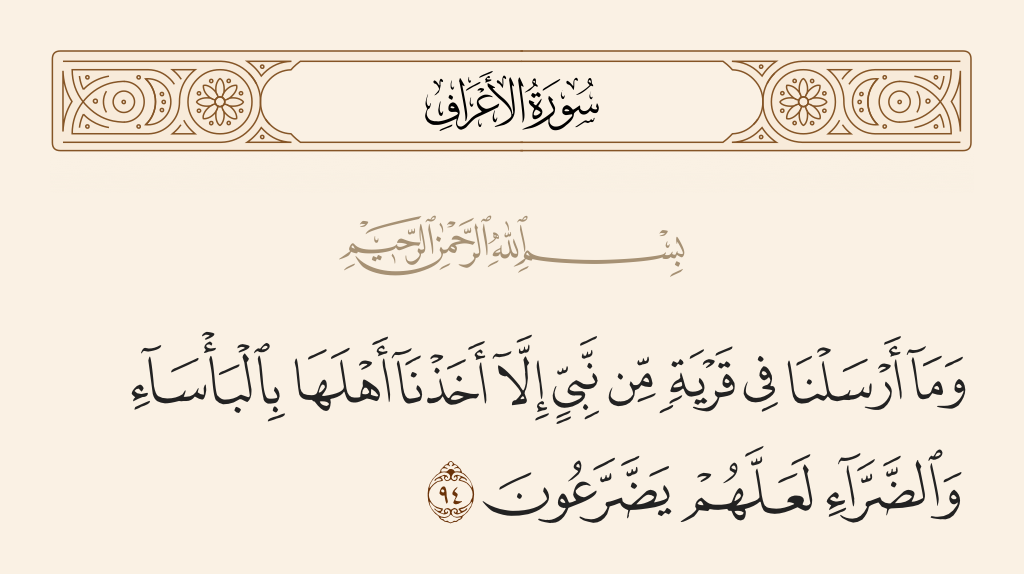 سُورَةُ الأَعْرَافِ
بِسْمِ ٱللَّهِ ٱلرَّحْمَٰنِ ٱلرَّحِيمِ
وَمَآ أَرْسَلْنَا فِى قَرْيَةٍ مِّن نَّبِىٍّ إِلَّآ أَخَذْنَآ أَهْلَهَا بِٱلْبَأْسَآءِ
وَٱلضَّرَّآءِ لَعَلَّهُمْ يَضَّرَّعُونَ ٩٤